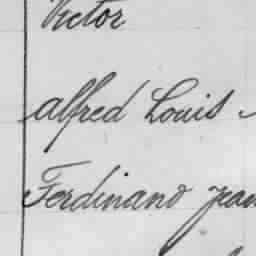 Victor
Alfred Louis
Ferdinand Jean